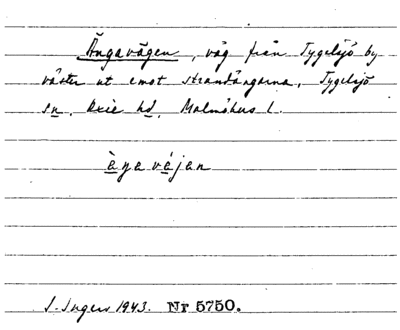 Ängavägen, väg från Tygelsjö by
väster ut emot strandängarna, Tygelsjö
sn, Oxie hd, Malmöhus l.
àŋavájan
I. Ingers 1943. Nr 5750.